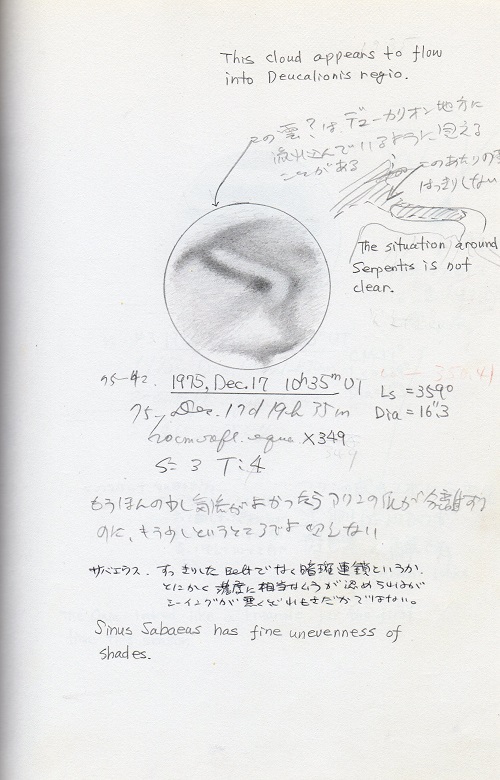 This cloud appears to flow
into Deucalionis regio.
この雲?は、デューカリオン地方に
流れ込んでいるように見える
ことがある
このあたりの
はっきりしない
The situation around
Serpentis is not
clear.
1975, Dec.17 10h35m UT
Ls = 359°
Dia = 16".3
75 Dec. 17d 19h 35m
20cm refl. ×349
S= 3 T: 4
もうほんの少し気流がよかったらアリンの爪が分離する
のに、もう少しというところで
サバエウス. すっきりしたBeltでなく暗斑連鎖というか、
とにかく濃度に相当なムラが認められるが
シーイングが悪くそれもさだかではない。
Sinus Sabaeus has fine unevenness of
shades.